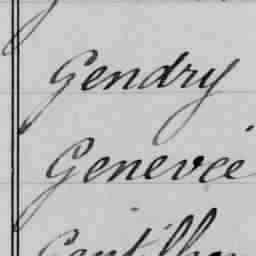 Gendry
Genevée